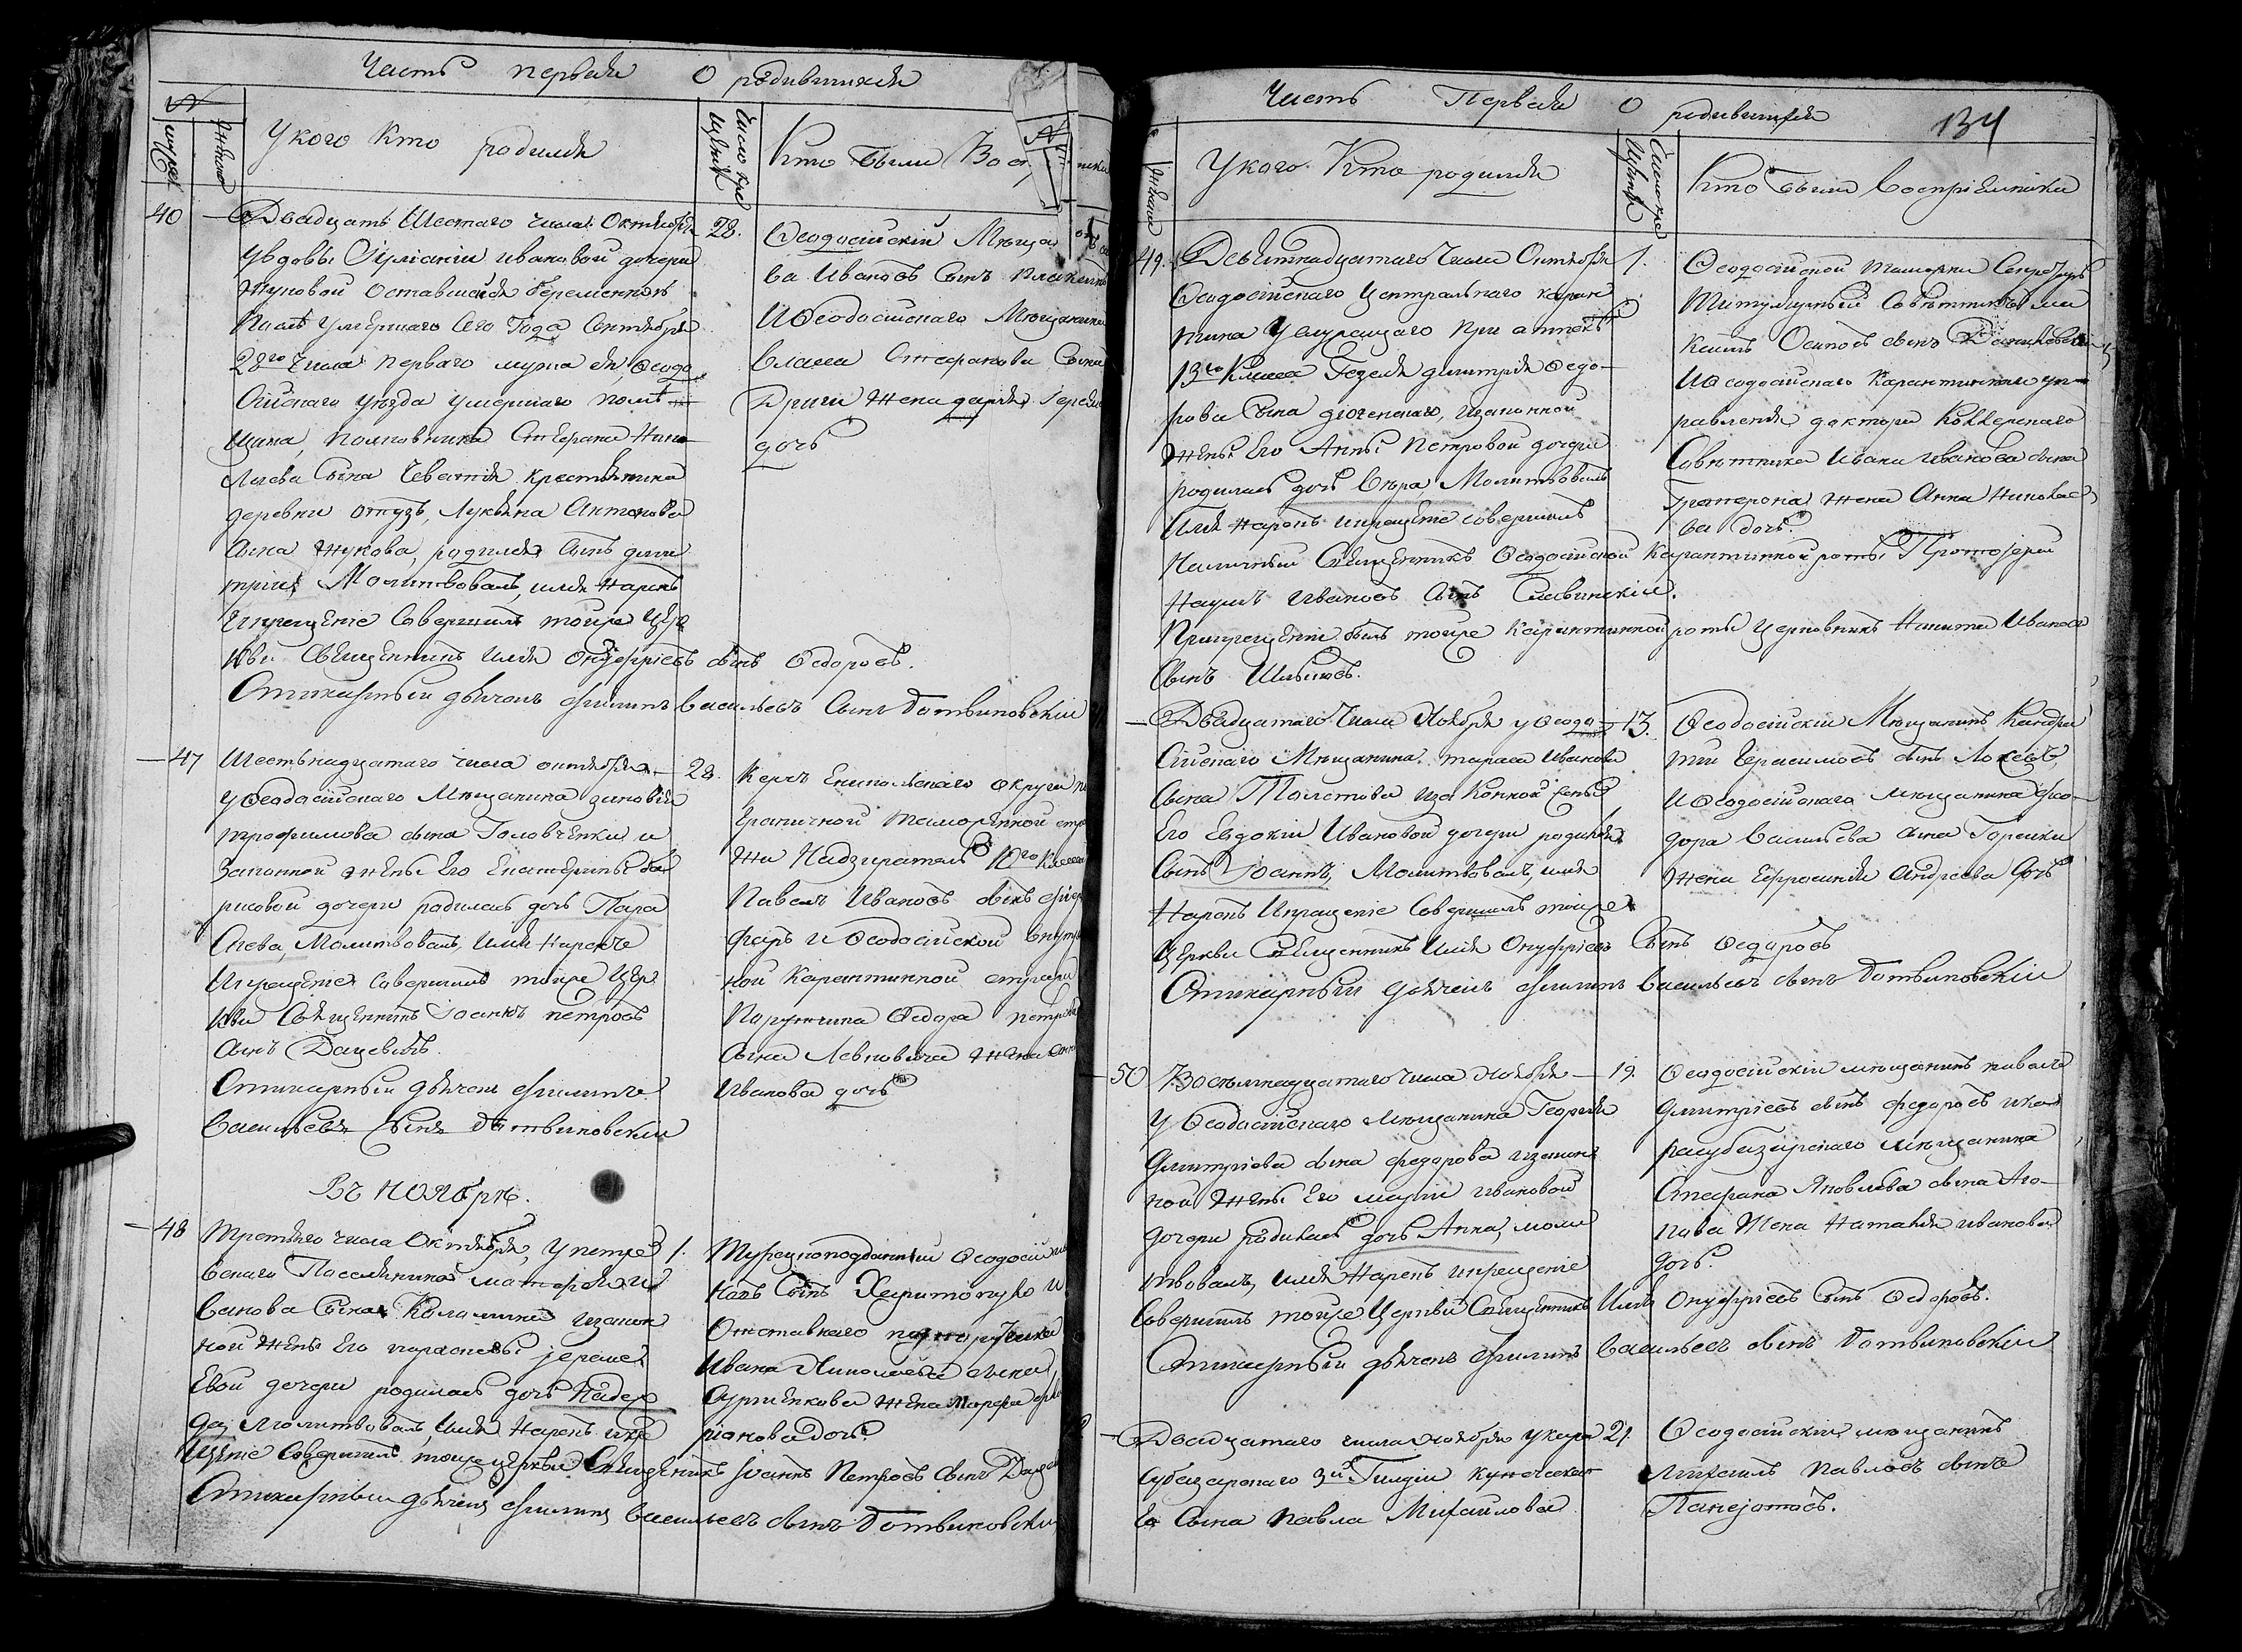 Часть первая О родившихся
№
мужес
женска
У кого кто родился
Число кре
щенія
Кто были Вос
40 Двадцать Шестаго числа Октября 28.
у вдовы Іуліаніи ивановой дочери
Жуковой Оставшейся беременною
После умершаго Сего Года Сентября
28го числа перваго мужа ея, Ѳеодо
Сійскаго уезда умершаго поме
щика, полковника Стефана Нико
лаева Сына крестьянина
деревни отузъ, Лукьяна Антонова
Сына Жукова, родился Сынъ дими
трій, Молитвовалъ, имя Нарекъ
И крещеніе Совершилъ тойже Цер
кви Священникъ Илія Онуфріевъ сынъ Ѳедоровъ.
Стихарный дьячекъ Филипъ Васильевъ Сынъ Ботвиновскій
Ѳеодосійскій Мещ
ва Ивановъ Сынъ
И Ѳеодосійскаго Мещанина
Власа Стефанова Сына
жена дарія
дочь
47 Шестьнадцатаго числа октября 28.
у Ѳеодосійскаго Мещанина зиновія
трофимова сына Головченки и
Законной жены Его Екатерины бо
рисовой дочери родилась дочь Пара
скева, Молитвовалъ, Имя Нарекъ
И крещеніе Совершилъ тойже Цер
кви Священникъ Іоаннъ петровъ
сынъ Дацевичъ.
Стихарный дьячекъ Филипъ
Васильевъ Сынъ Ботвиновскій
Керчь Еникольскаго округа
граничной таможенной стра
жи Надзиратель 10го Класса
Павелъ Ивановъ сынъ
и Ѳеодосійской внутрен
ной Карантинной стражи
Поручика Ѳедора петрова
Сына Левковича жена
Иванова дочь
Въ ноябрѣ.
48 Третьяго числа Октября, у петро 1.
вскаго Поселянина матфея и
ванова Сына Коломійца и закон
ной жены Его параскевы јеремее
вой дочери родилась дочь Надеж
да, Молитвовалъ, Имя Нарекъ и кре
щеніе Совершилъ тойже церкви Священникъ јоаннъ Петровъ Сынъ
Стихарный дьячекъ Филипъ Васильевъ сынъ Ботвиновскій
Турецкоподданный Ѳеодосій
Сынъ и
Отставнаго подпоручика
Ивана Николаева сына
жена Марфа
дочь
Часть Первая О родившихся
134
женска
У кого Кто родился
Число кре
щенія
Кто были Воспріемники
49. Девятнадцатаго Числа Октября 1.
Ѳеодосійскаго Центральнаго каран
тина У служащаго при аптекѣ
13го Класса Гезеля димитрія Ѳедо
рова Сына и законной
жены Его Анны Петровой дочери
родилась дочь Вѣра, Молитвовалъ
Имя Нарекъ и крещеніе совершилъ
Священникъ Ѳеодосійской Карантинной роты Протојерей
Наумъ Ивановъ Сынъ Славинскій.
При крещеніи былъ тойже Карантинной роты Церковникъ Никита Иванов
Сынъ
Ѳеодосійской таможни Секретарь
Титулярный Совѣтникъ ма
ксимъ Осиповъ сынъ
И Ѳеодосійскаго Карантиннаго уп
равленія доктора Коллежскаго
Совѣтника Ивана Иванова сына
Гратерона жена Анна Николае
ва дочь.
Двадцатаго Числа Ноября у Ѳеодо 13.
Сійскаго Мещанина тараса Иванова
сына Толстова и за Конной жены
Его Евдокіи Ивановой дочери родился
Сынъ Іоаннъ, Молитвовалъ, имя
Нарекъ И крещеніе Совершилъ тойже
Церкви Священникъ Илія Онуфріевъ Сынъ Ѳедоровъ
Стихарный дьячекъ Филипъ Васильевъ сынъ Ботвиновскій
Ѳеодосійскій Мещанинъ Кондра
тій Герасимовъ сынъ
И Ѳеодосійскаго мещанина Фео
дора Васильева сына
жена Ефросинія Андреева дочь
50 Восемнадцатаго числа Ноября 19.
У Ѳеодосійскаго Мещанина Георгія
димитріева сына федорова и закон
ной жены Его маріи ивановой
дочери родилась дочь Анна, моли
твовалъ, имя Нарекъ и крещеніе
Совершилъ тойже Церкви Священникъ Илія Онуфріевъ Сынъ Ѳедоровъ.
Стихарный дьячекъ Филипъ Васильевъ сынъ Ботвиновскій
Ѳеодосійскій мещанинъ павелъ
Димитріевъ сынъ федоровъ и ка
расубазарскаго мещанина
Стефана Яковлева сына
Жена Наталія иванова
дочь.
Двадцатаго числа Ноября у кара 21.
субазарскаго 3й Гилдіи купеческа
го Сына павла Михайлова
Ѳеодосійскій мещанинъ
Михаилъ Павловъ сынъ
Панејотовъ.